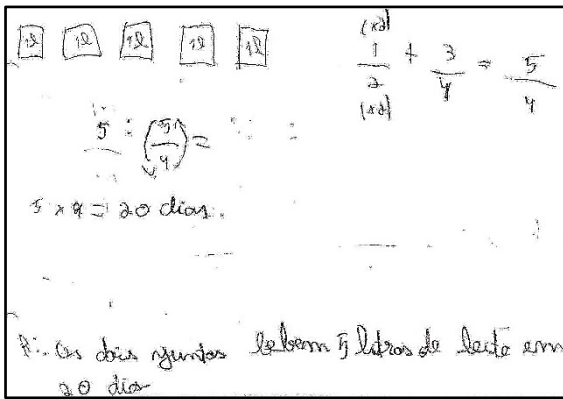 1l 1l 1l 1l 1l
(x2)
1/2 + 3/4 = 5/4
(x2)
5 : (5/4) =
5 x 4 = 20 dias.
R: Os dois juntos bebem 5 litros de leite em
20 dias